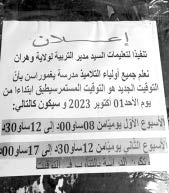 إعلان
تنفيذا لتعليمات السيد مدير التربية لولاية وهران
نعلم جميع أولياء التلاميذ مدرسة بغمورسان بأن
التوقيت الجديد هو التوقيت المستمر سيطبق ابتداءا من
يوم الأحد 01 أكتوبر 2023 و سيكون كالتالي:
الأسبوع الأول يوميا من 08سا و00د إلى 12سا و30د
الأسبوع الثاني يوميا من 12سا و30د إلى 17سا و00د